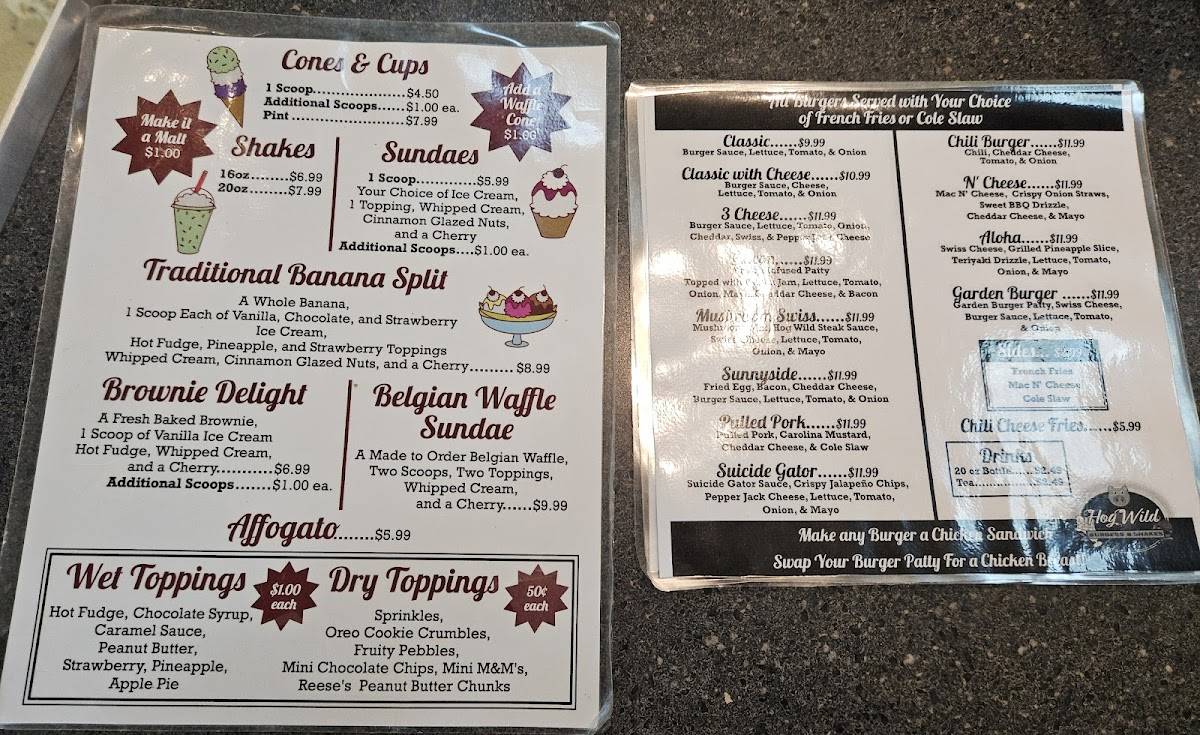 Cones & Cups
1 Scoop......................$4.50
Additional Scoops......$1.00 ea.
Pint..........................$7.99
Add a
Waffle
Cone
$1.00
Make it
a Malt
$1.00
Shakes
16oz........$6.99
20oz........$7.99
Sundaes
1 Scoop.............$5.99
Your Choice of Ice Cream,
1 Topping, Whipped Cream,
Cinnamon Glazed Nuts,
and a Cherry
Additional Scoops....$1.00 ea.
Traditional Banana Split
A Whole Banana,
1 Scoop Each of Vanilla, Chocolate, and Strawberry
Ice Cream,
Hot Fudge, Pineapple, and Strawberry Toppings
Whipped Cream, Cinnamon Glazed Nuts, and a Cherry......... $8.99
Brownie Delight
A Fresh Baked Brownie,
1 Scoop of Vanilla Ice Cream
Hot Fudge, Whipped Cream,
and a Cherry...........$6.99
Additional Scoops.......$1.00 ea.
Belgian Waffle
Sundae
A Made to Order Belgian Waffle,
Two Scoops, Two Toppings,
Whipped Cream,
and a Cherry......$9.99
Affogato........$5.99
Wet Toppings
$1.00
each
Hot Fudge, Chocolate Syrup,
Caramel Sauce,
Peanut Butter,
Strawberry, Pineapple,
Apple Pie
Dry Toppings
50¢
each
Sprinkles,
Oreo Cookie Crumbles,
Fruity Pebbles,
Mini Chocolate Chips, Mini M&M's,
Reese's Peanut Butter Chunks
All Burgers Served with Your Choice
of French Fries or Cole Slaw
Classic......$9.99
Burger Sauce, Lettuce, Tomato, & Onion
Classic with Cheese......$10.99
Burger Sauce, Cheese,
Lettuce, Tomato, & Onion
3 Cheese......$11.99
Burger Sauce, Lettuce, Tomato, Onion,
Cheddar, Swiss, & Pepper Jack Cheese
......$11.99
Infused Patty
Topped with Jam, Lettuce, Tomato,
Onion, Mayo, Cheddar Cheese, & Bacon
Mushroom Swiss......$11.99
Hog Wild Steak Sauce,
Swiss Cheese, Lettuce, Tomato,
Onion, & Mayo
Sunnyside......$11.99
Fried Egg, Bacon, Cheddar Cheese,
Burger Sauce, Lettuce, Tomato, & Onion
Pulled Pork......$11.99
Pulled Pork, Carolina Mustard,
Cheddar Cheese, & Cole Slaw
Suicide Gator......$11.99
Suicide Gator Sauce, Crispy Jalapeño Chips,
Pepper Jack Cheese, Lettuce, Tomato,
Onion, & Mayo
Chili Burger......$11.99
Chili, Cheddar Cheese,
Tomato, & Onion
N' Cheese......$11.99
Mac N' Cheese, Crispy Onion Straws,
Sweet BBQ Drizzle,
Cheddar Cheese, & Mayo
Aloha......$11.99
Swiss Cheese, Grilled Pineapple Slice,
Teriyaki Drizzle, Lettuce, Tomato,
Onion, & Mayo
Garden Burger ......$11.99
Garden Burger Patty, Swiss Cheese,
Burger Sauce, Lettuce, Tomato,
& Onion
Sides...
French Fries
Mac N' Cheese
Cole Slaw
Chili Cheese Fries......$5.99
Drinks
20 oz Bottle......$2.49
Tea..................$2.49
Hog Wild
BURGERS & SHAKES
Make any Burger a Chicken Sandwich
Swap Your Burger Patty For a Chicken Breast!